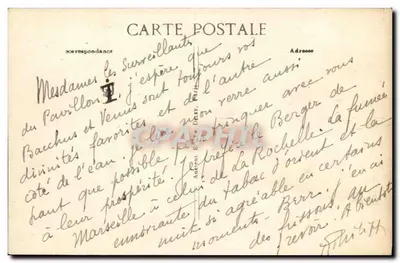 CARTE POSTALE
Correspondance
Adresse
Mesdames les Surveillantes
du Pavillon I, j'espère que
Bacchus et Venus sont toujours vos
divinités favorites et de l'autre
côté de l'eau. Je lève mon verre aussi
haut que possible pour trinquer avec vous
à leur prospérité. Je préfère le Berger de
Marseille à celui de La Rochelle. La fumée
enivrante du tabac d'orient et la
nuit si agréable en certains
moments - Brrr.. j'en ai
des frissons. Au
revoir. A bientôt